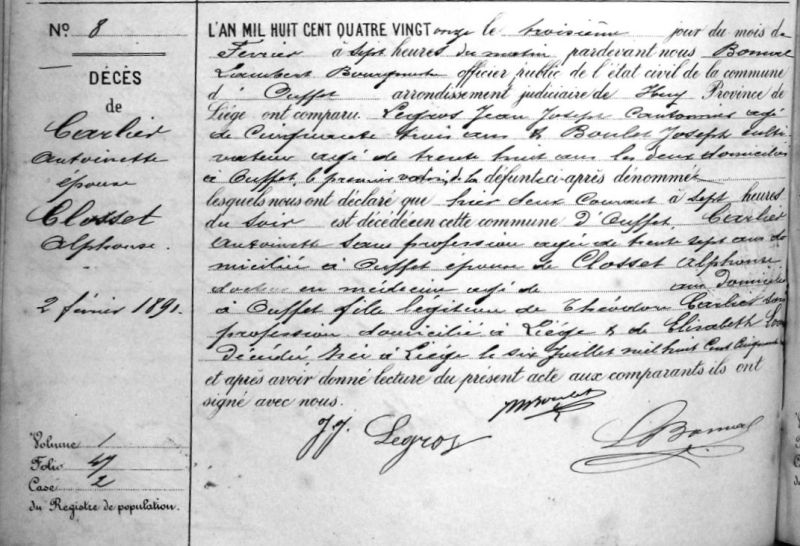 N° 8
DÉCÈS
de
Carlier
Antoinette
épouse
Closset
Alphonse.
2 février 1891.
Volume 1
Folio 47
Case 2
du Registre de population.
L'AN MIL HUIT CENT QUATRE VINGT onze le troisième jour du mois de
Février à sept heures du matin pardevant nous Bonmal
Lambert Bourgmestre officier public de l'état civil de la commune
d' Ouffet arrondissement judiciaire de Huy Province de
Liége ont comparu Legros Jean Joseph Cantonnier agé
de Cinquante trois ans & Boulet Joseph culti
vateur agé de trente huit ans les deux domiciliés
à Ouffet, le premier voisin de la défunte ci-après dénommée
lesquels nous ont déclaré que hier deux Courant à sept heures
du Soir est décédée en cette commune D'Ouffet, Carlier
Antoinette sans profession agée de trente sept ans do
miciliée à Ouffet épouse de Closset Alphonse
docteur en médecine agé de ans Domicilié
à Ouffet fille légitime de Théodore Carlier sans
profession domicilié à Liége & de Elisabeth
décédée née à Liége le six Juillet mil huit Cent Cinquante
et après avoir donné lecture du présent acte aux comparants ils ont
signé avec nous.
J. J. Legros
Boulet
L Bonmal